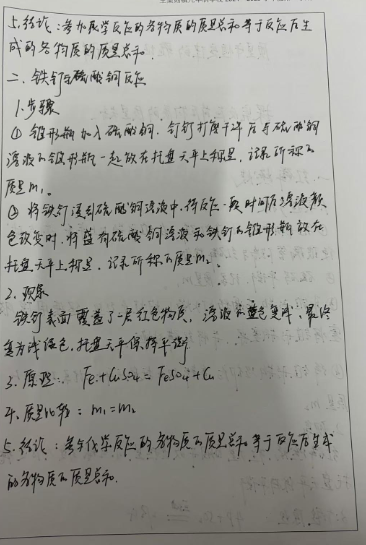 5.结论：参加化学反应的各物质的质量总和等于反应后生
成的各物质的质量总和.
二、铁钉与硫酸铜反应
1.步骤
① 锥形瓶加入硫酸铜,钉打磨干净后与硫酸铜
溶液的锥形瓶一起放在托盘天平上称量,记录所称的
质量m₁.
② 将铁钉浸到硫酸铜溶液中.待反应一段时间后溶液颜
色改变时.将盛有硫酸铜溶液和铁钉的锥形瓶放在
托盘天平上称量,记录所称的质量m₂.
2.现象
铁钉表面覆盖了一层红色物质,溶液由蓝色变浅,最终
变为浅绿色,托盘天平保持平衡
3.原理: Fe+CuSO₄=FeSO₄+Cu
4.质量比较: m₁=m₂
5.结论:参与化学反应的各物质的质量总和等于反应后生成
的各物质的质量总和.